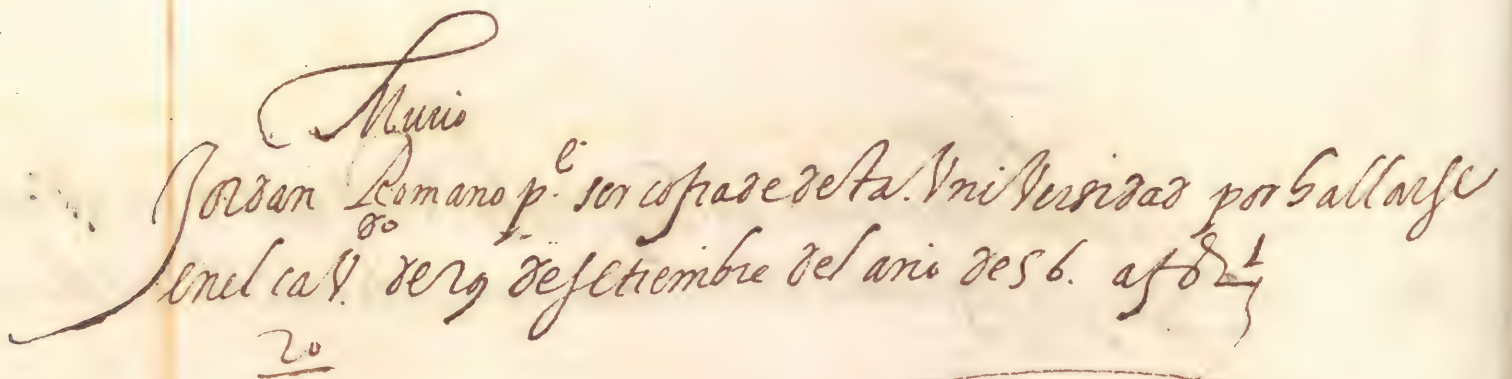 Murio
Jordan Romano p.e ser cofrade desta. Universidad por hallarse
en el cav.do de 29 de setiembre del año de 56. a f
20